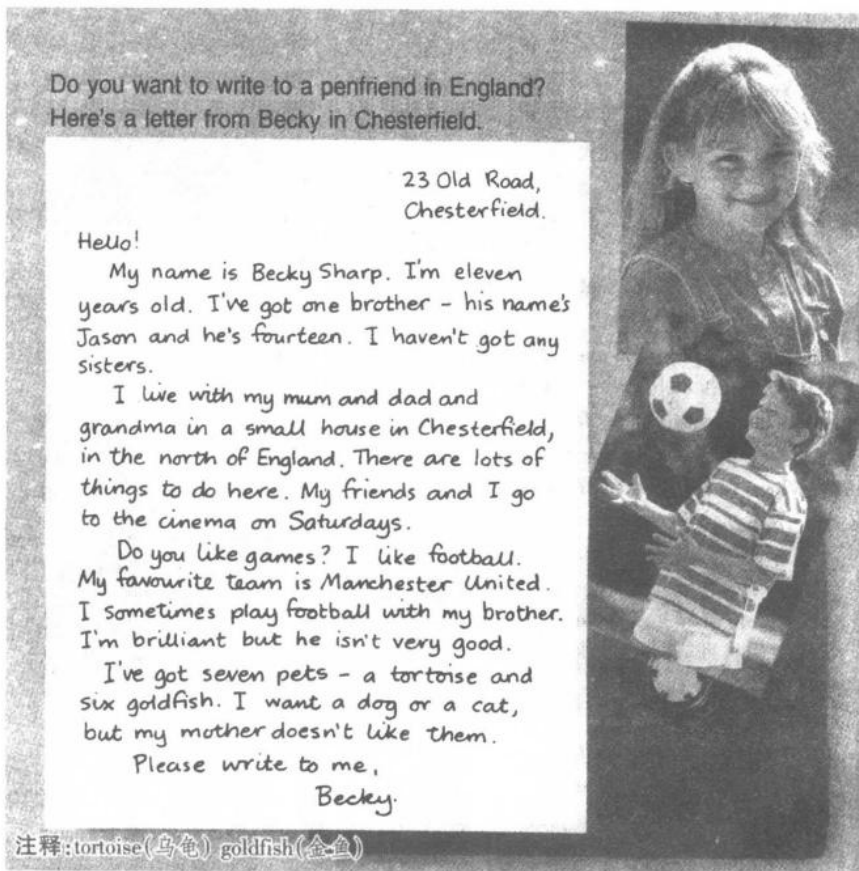 Do you want to write to a penfriend in England?
Here's a letter from Becky in Chesterfield.
23 Old Road,
Chesterfield.
Hello!
My name is Becky Sharp. I'm eleven
years old. I've got one brother - his name's
Jason and he's fourteen. I haven't got any
sisters.
I live with my mum and dad and
grandma in a small house in Chesterfield,
in the north of England. There are lots of
things to do here. My friends and I go
to the cinema on Saturdays.
Do you like games? I like football.
My favourite team is Manchester United.
I sometimes play football with my brother.
I'm brilliant but he isn't very good.
I've got seven pets - a tortoise and
six goldfish. I want a dog or a cat,
but my mother doesn't like them.
Please write to me,
Becky.
注释:tortoise(乌龟) goldfish(金鱼)